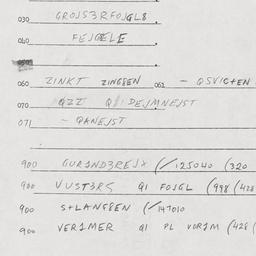 030 GROJS3RFOJGL8
040 FEJGELE
060 ZINKT ZINGSEN 061 - QSVIC+EN
070 QZZ QI DEJMNEJST
071 - QANEJST
900 GUR2ND3REJX (/125040 (320
900 VUST3RS QI FOJGL (998 (428
900 S+LANGSEN (/147010
900 VER2MER QI PL VOR2M (428 (